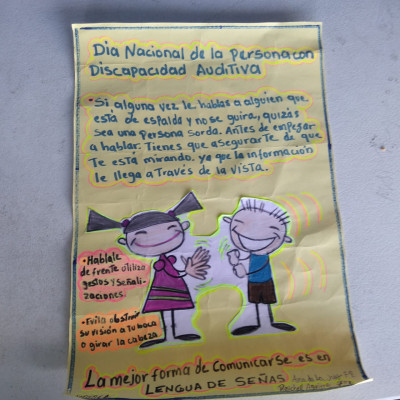 Dia Nacional de la Persona con
Discapacidad Auditiva
• Si alguna vez le hablas a alguien que
esta de espalda y no se guira, quizás
sea una persona sorda. Antes de empezar
a hablar. Tienes que asegurarte de que
Te está mirando, ya que la información
le llega a Través de la vista.
• Hablale
de frente utiliza
gestos y señali-
zaciones.
• Evita obstruir
su visión a tu boca
o girar la cabeza
La mejor forma de comunicarse es en
LENGUA DE SEÑAS